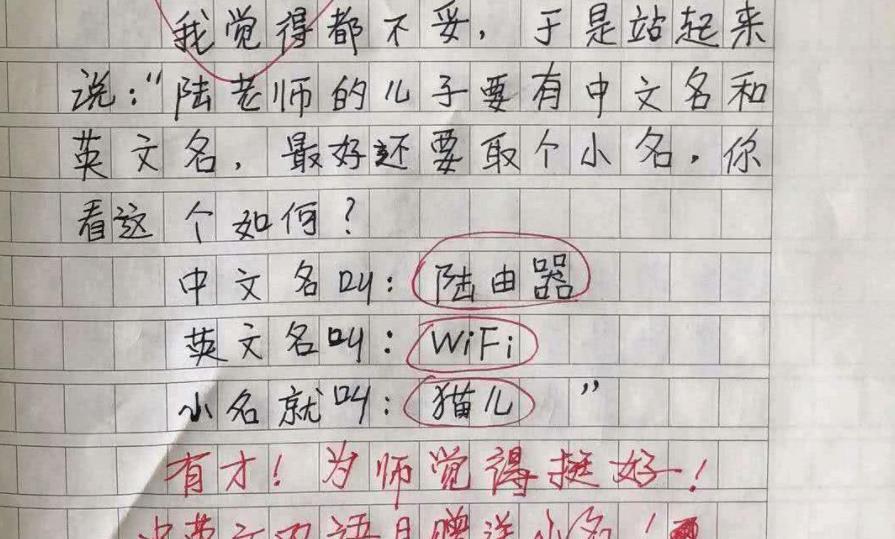 我觉得都不妥，于是站起来
说："陆老师的儿子要有中文名和
英文名，最好还要取个小名，你
看这个如何？
中文名叫：陆由器
英文名叫：WiFi
小名就叫：猫儿"
有才！为师觉得挺好！
中英文双语且赠送小名！